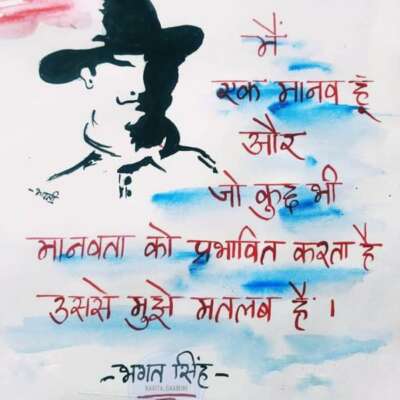 मैं
एक मानव हूं
और
जो कुछ भी
मानवता को प्रभावित करता है
उससे मुझे मतलब है।
-भगत सिंह-